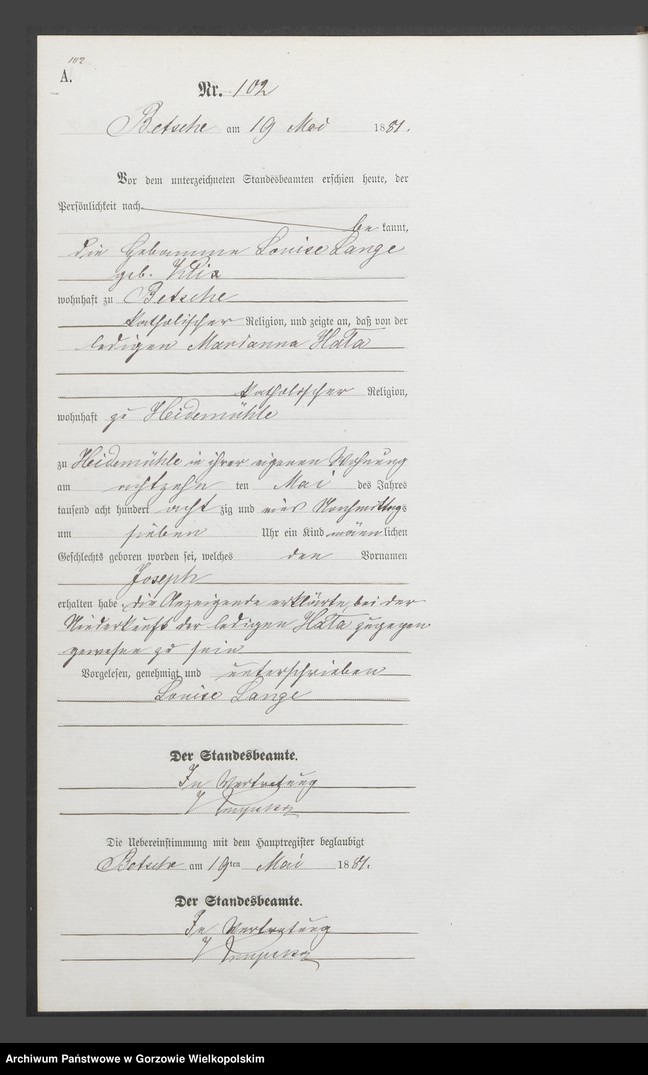 102
A.
Nr. 102
Betsche am 19 Mai 1881.
Vor dem unterzeichneten Standesbeamten erschien heute, der
Persönlichkeit nach
be kannt,
die Hebamme Louise Lange
geb. Klix
wohnhaft zu Betsche
katholischer Religion, und zeigte an, daß von der
ledigen Marianna Hata
katholischer Religion,
wohnhaft zu Heidemühle
zu Heidemühle in ihrer eigenen Wohnung
am achtzehn ten Mai des Jahres
tausend acht hundert acht zig und eins Nachmittags
um sieben Uhr ein Kind männ lichen
Geschlechts geboren worden sei, welches den Vornamen
Joseph
erhalten habe, die Anzeigende erklärte, bei der
Niederkunft der ledigen Hata zugegen
gewesen zu sein
Vorgelesen, genehmigt und unterschrieben
Louise Lange
Der Standesbeamte.
In Vertretung
Die Uebereinstimmung mit dem Hauptregister beglaubigt
Betsche am 19ten Mai 1881.
Der Standesbeamte.
In Vertretung
Archiwum Państwowe w Gorzowie Wielkopolskim